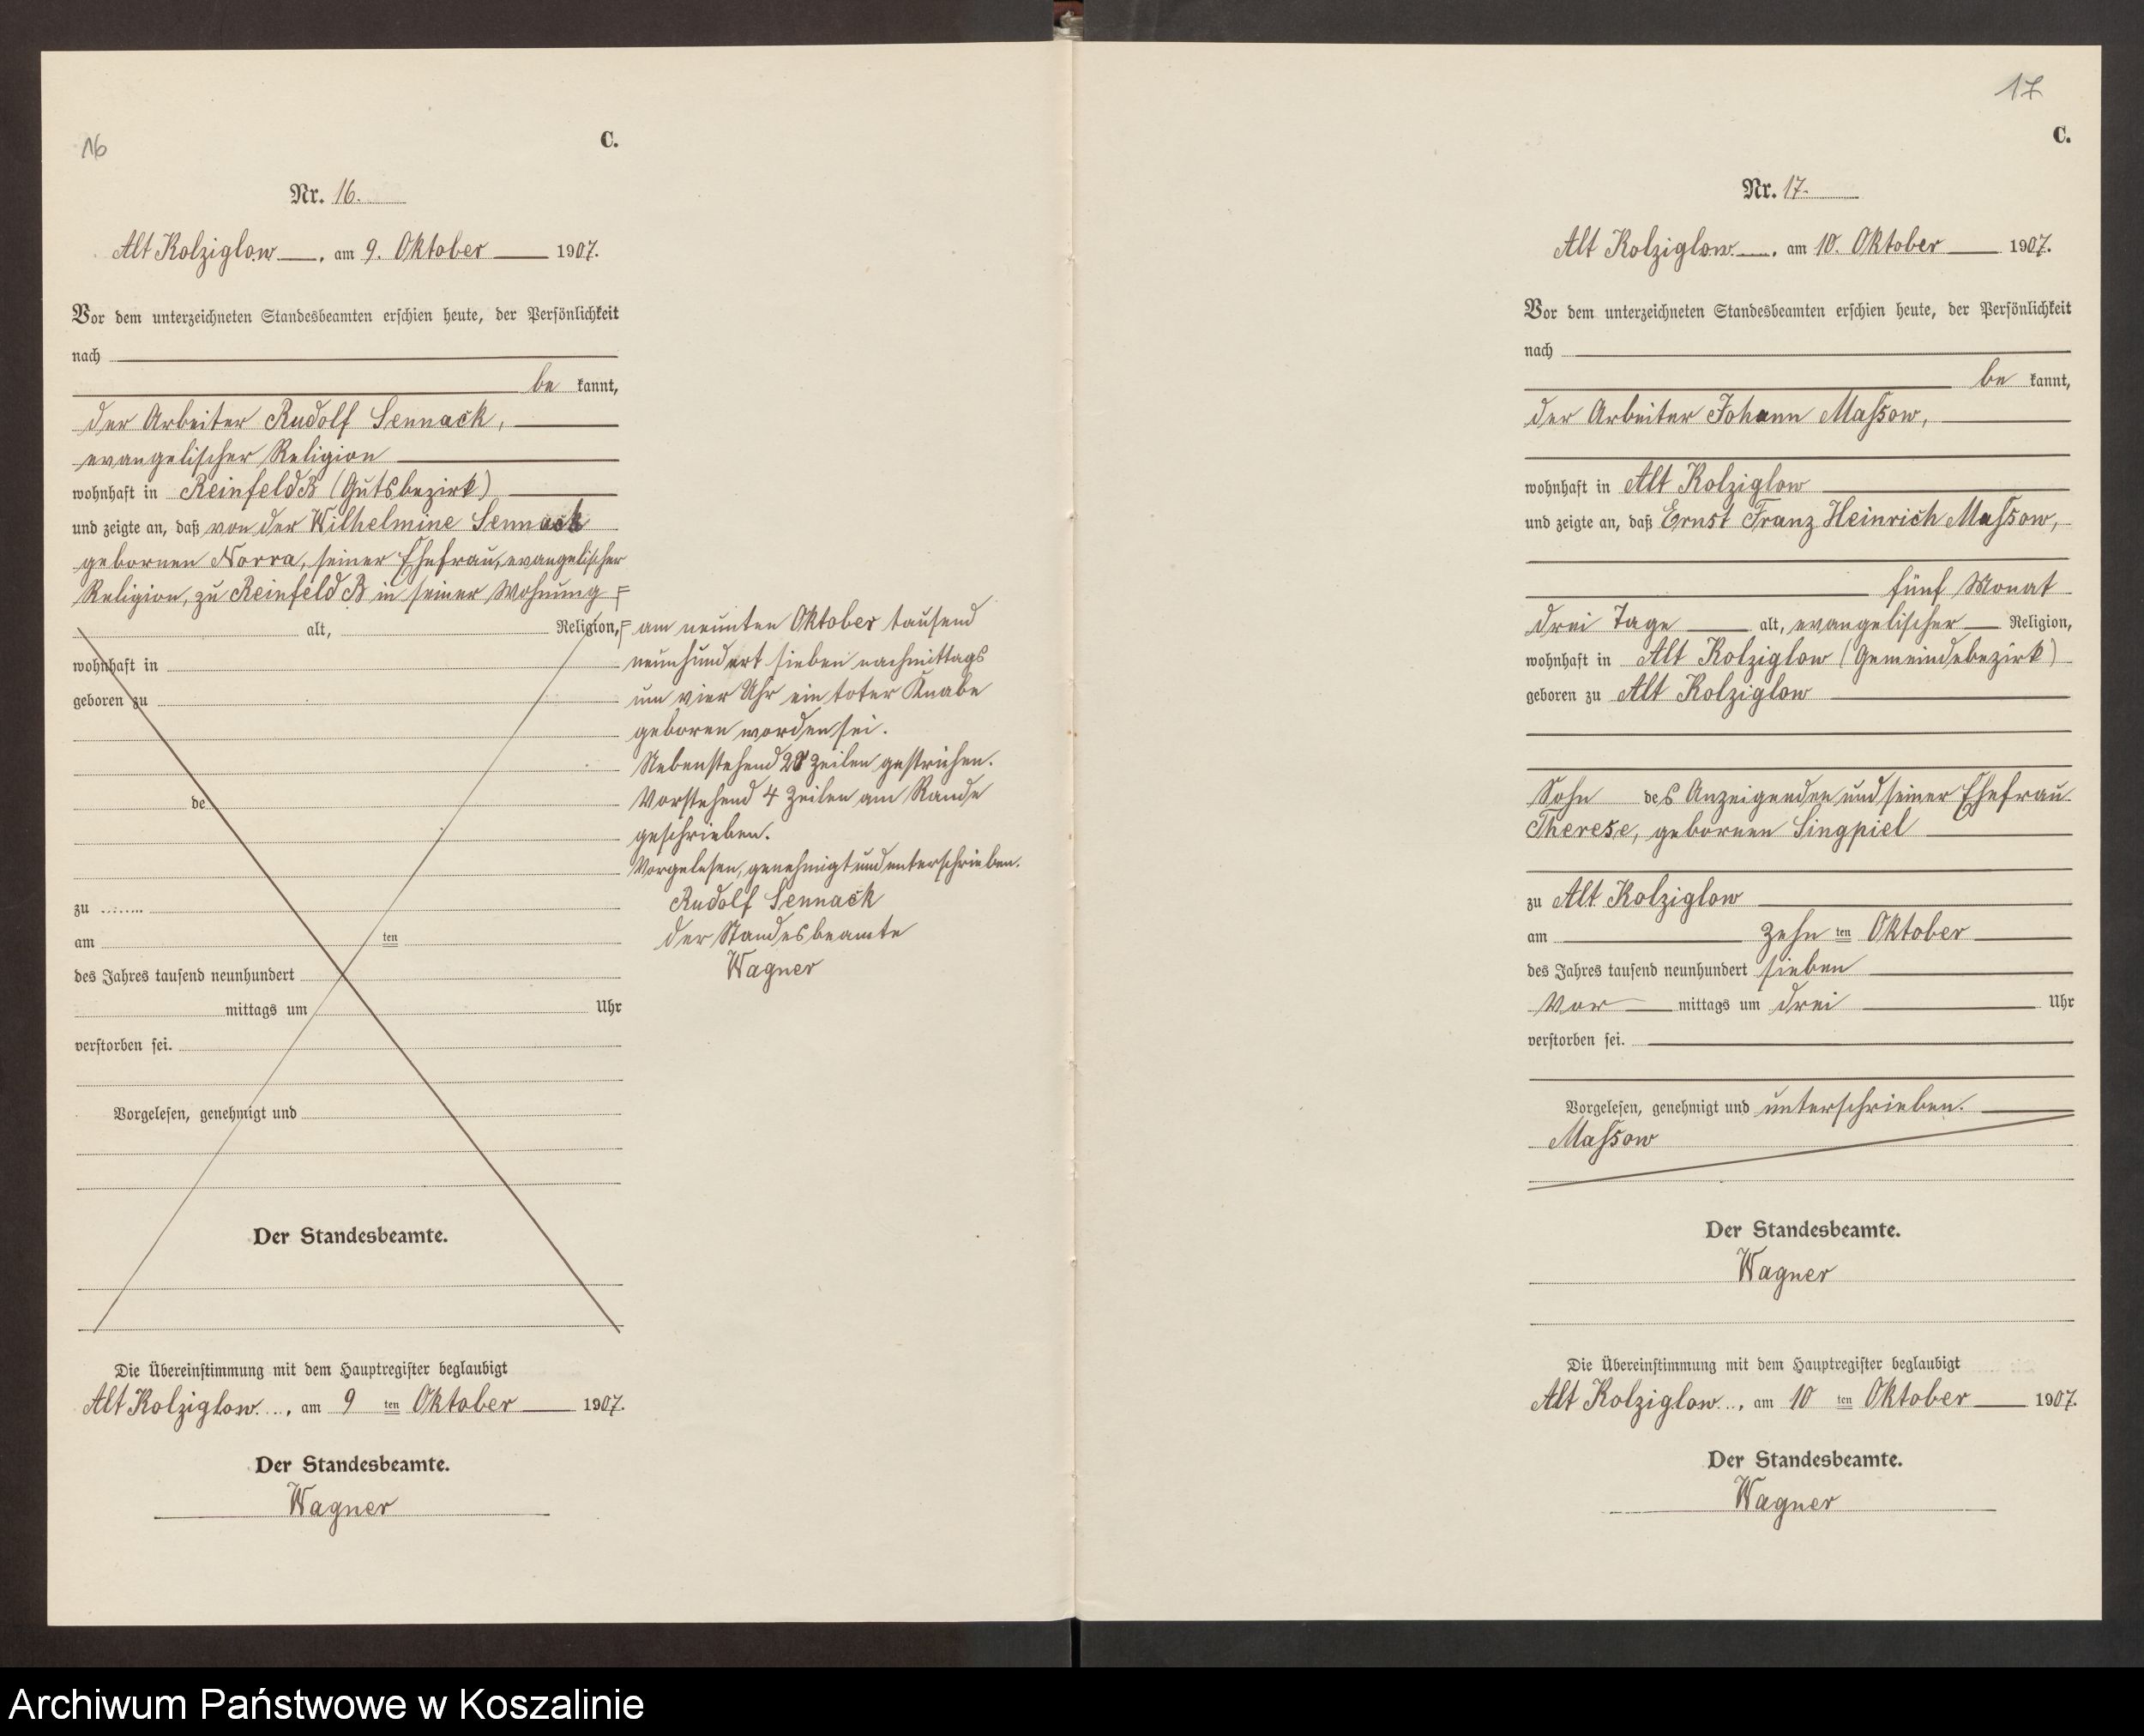 16
C.
Nr. 16.
Alt Kolziglow, am 9. Oktober 1907.
Vor dem unterzeichneten Standesbeamten erschien heute, der Persönlichkeit
nach
be kannt,
der Arbeiter Rudolf Sennack,
evangelischer Religion
wohnhaft in Reinfeld B (Gutsbezirk)
und zeigte an, daß von der Wilhelmine Sennack
gebornen Norra, seiner Ehefrau, evangelischer
Religion, zu Reinfeld B in seiner Wohnung
alt, Religion,
wohnhaft in
geboren zu
de
zu
am ten
des Jahres tausend neunhundert
mittags um Uhr
verstorben sei.
Vorgelesen, genehmigt und
Der Standesbeamte.
am neunten Oktober tausend
neunhundert sieben nachmittags
um vier Uhr ein toter Knabe
geboren worden sei.
Nebenstehend 20 Zeilen gestrichen.
Vorstehend 4 Zeilen am Rande
geschrieben.
Vorgelesen, genehmigt und unterschrieben.
Rudolf Sennack
der Standesbeamte
Wagner
Die Übereinstimmung mit dem Hauptregister beglaubigt
Alt Kolziglow, am 9 ten Oktober 1907.
Der Standesbeamte.
Wagner
17
C.
Nr. 17.
Alt Kolziglow, am 10. Oktober 1907.
Vor dem unterzeichneten Standesbeamten erschien heute, der Persönlichkeit
nach
be kannt,
der Arbeiter Johann Maſsow,
wohnhaft in Alt Kolziglow
und zeigte an, daß Ernst Franz Heinrich Maſsow,
fünf Monat
drei Tage alt, evangelischer Religion,
wohnhaft in Alt Kolziglow (Gemeindebezirk)
geboren zu Alt Kolziglow
Sohn des Anzeigenden und seiner Ehefrau
Therese, gebornen Singpiel
zu Alt Kolziglow
am zehn ten Oktober
des Jahres tausend neunhundert sieben
Vor mittags um drei Uhr
verstorben sei.
Vorgelesen, genehmigt und unterschrieben.
Maſsow
Der Standesbeamte.
Wagner
Die Übereinstimmung mit dem Hauptregister beglaubigt
Alt Kolziglow, am 10 ten Oktober 1907.
Der Standesbeamte.
Wagner
Archiwum Państwowe w Koszalinie